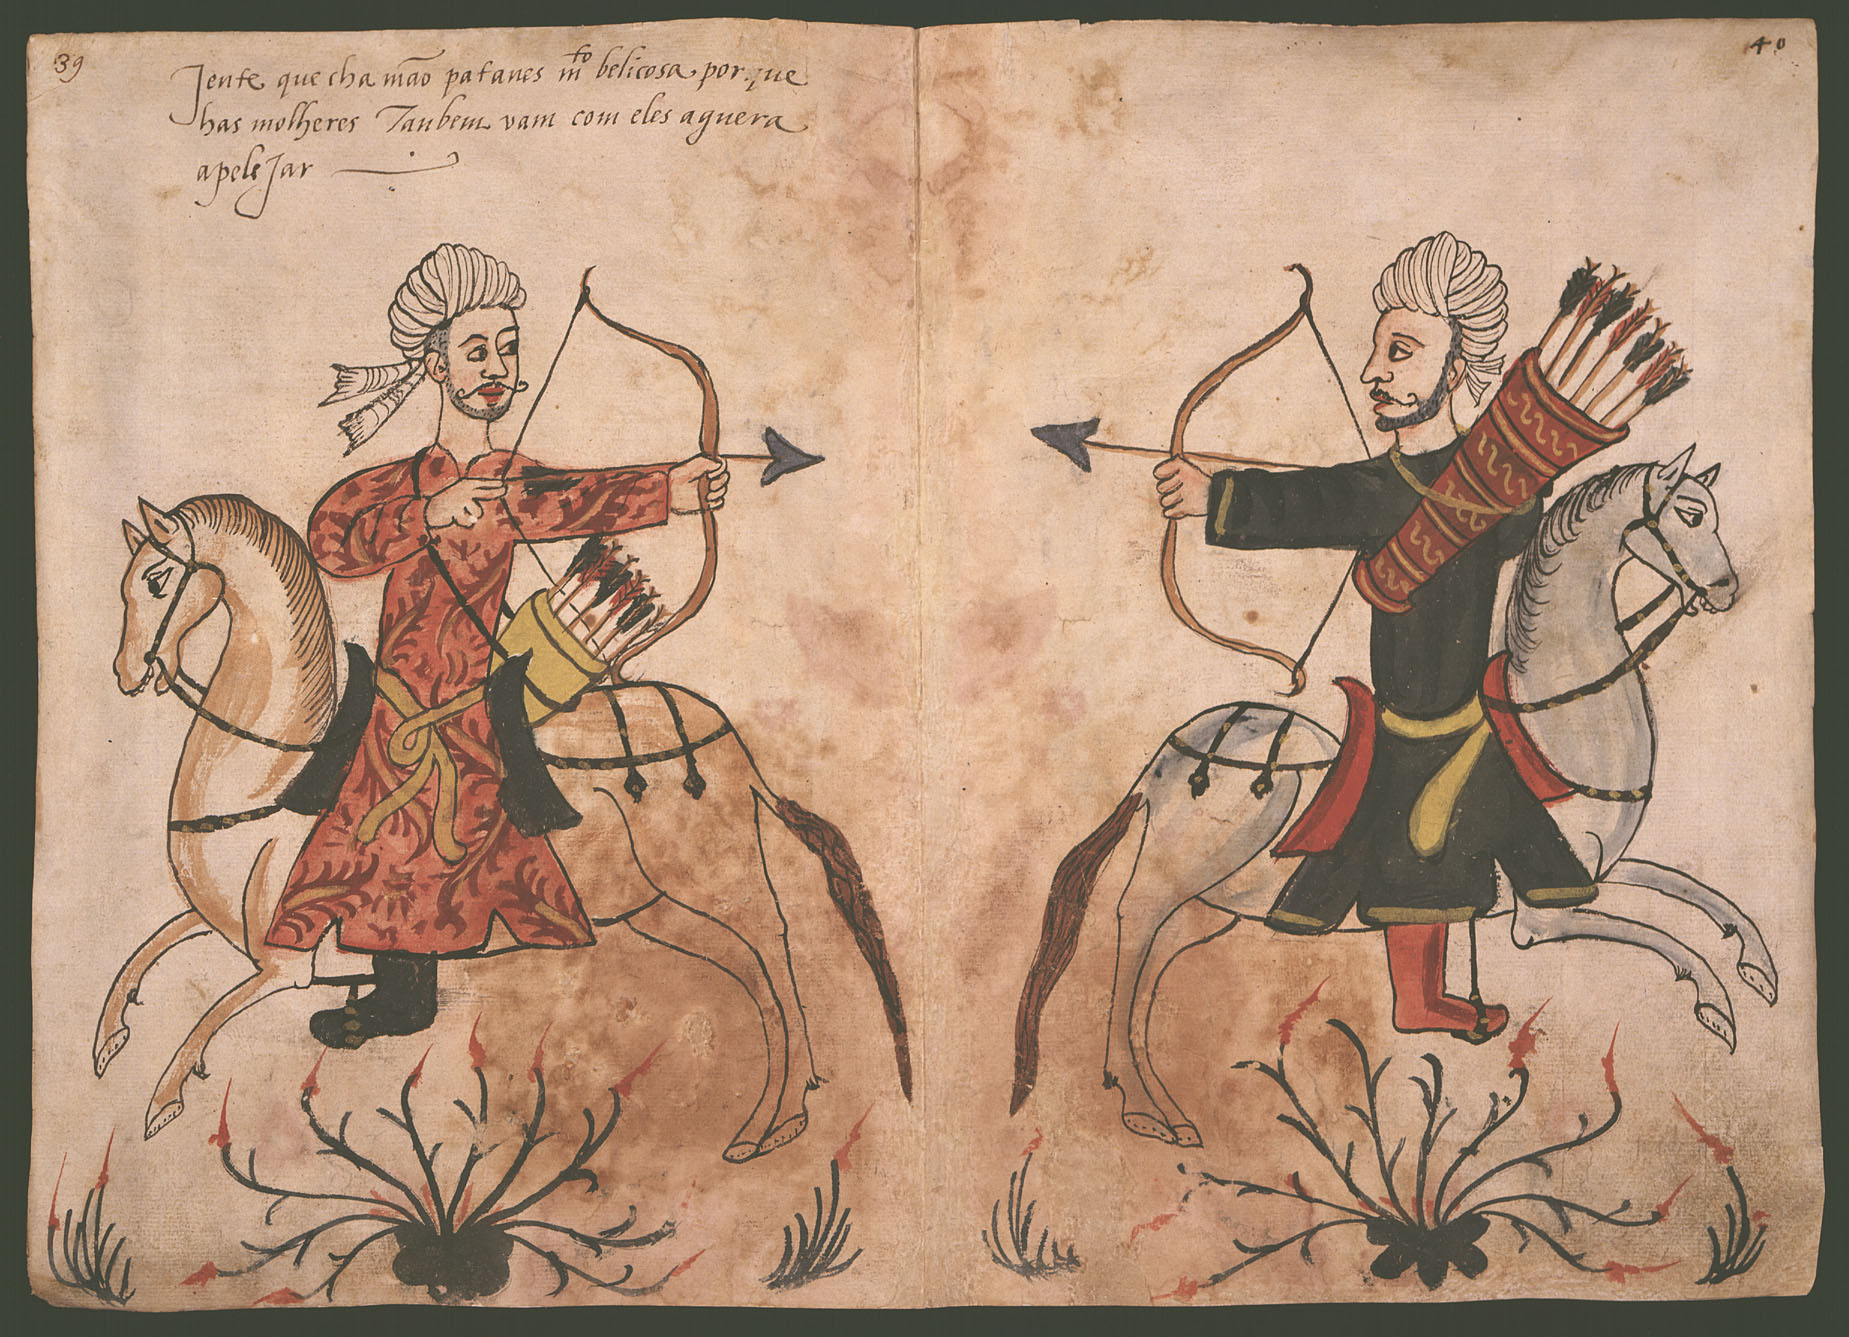 39
40
Jente que cha mão patanes mto belicosa por que
has molheres Taubem vam com eles aguera
apeleJar